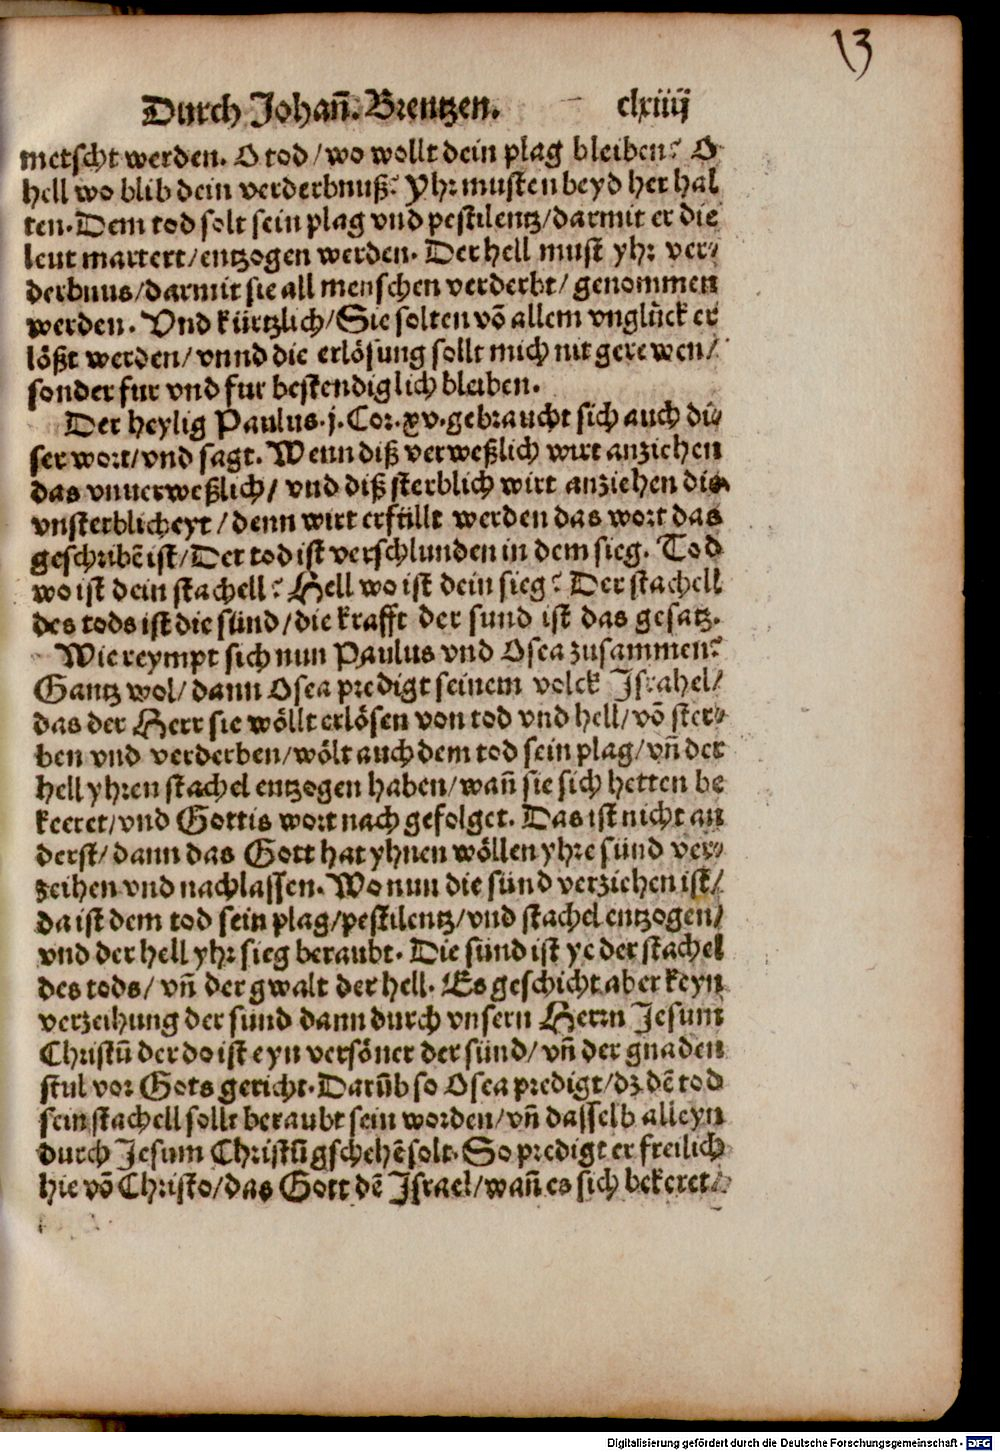 13
Durch Johañ. Brentzen. clxiiij
metscht werden. O tod/wo wollt dein plag bleiben? O
hell wo blib dein verderbnuß? Yhr musten beyd her hal
ten. Dem tod solt sein plag vnd pestilentz/darmit er die
leut martert/entzogen werden. Der hell must yhr ver⸗
derbnus/darmit sie all menschen verderbt/ genommen
werden. Vnd kürtzlich/Sie solten võ allem vnglück er
lößt werden/ vnnd die erlösung sollt mich nit gerewen/
sonder fur vnd fur bestendiglich bleiben.
Der heylig Paulus. j. Cor. xv. gebraucht sich auch di⸗
ser wort/vnd sagt. Wenn diß verweßlich wirt anziehen
das vnuerweßlich/ vnd diß sterblich wirt anziehen die
vnsterblicheyt/denn wirt erfüllt werden das wort das
geschribẽ ist/Der tod ist verschlunden in dem sieg. Tod
wo ist dein stachell? Hell wo ist dein sieg? Der stachell
des tods ist die sünd/die krafft der sund ist das gesatz.
Wie reympt sich nun Paulus vnd Osea zusammen?
Gantz wol/ dann Osea predigt seinem volck Israhel/
das der Herr sie wöllt erlösen von tod vnd hell/võ ster⸗
ben vnd verderben/wölt auch dem tod sein plag/vñ der
hell yhren stachel entzogen haben/wañ sie sich hetten be
keeret/vnd Gottis wort nach gefolget. Das ist nicht an
derst/ dann das Gott hat yhnen wöllen yhre sünd ver⸗
zeihen vnd nachlassen. Wo nun die sünd verziehen ist/
da ist dem tod sein plag/pestilentz/vnd stachel entzogen/
vnd der hell yhr sieg beraubt. Die sünd ist ye der stachel
des tods/ vñ der gwalt der hell. Es geschicht aber keyn
verzeihung der sünd dann durch vnsern Herrn Jesum
Christũ der do ist eyn versöner der sünd/ vñ der gnaden
stul vor Gots gericht. Darũb so Osea predigt/dz dẽ tod
sein stachell sollt beraubt sein worden/vñ dasselb alleyn
durch Jesum Christũ gschehẽ solt. So predigt er freilich
hie võ Christo/das Gott dẽ Israel/wañ es sich bekeret/
Digitalisierung gefördert durch die Deutsche Forschungsgemeinschaft - DFG